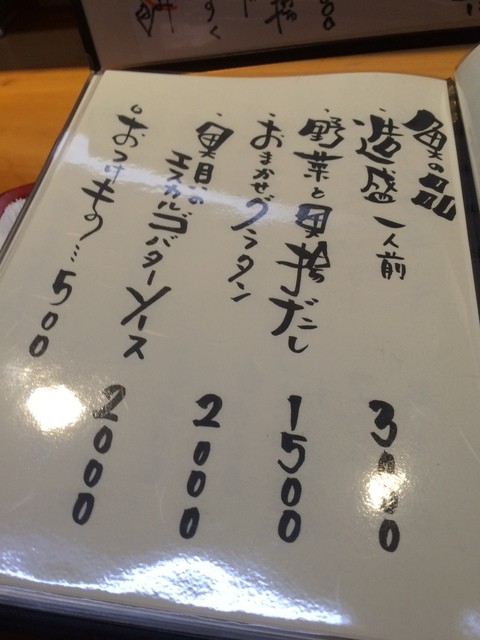 魚の品
・造盛 一人前 3000
・野菜と魚揚だし 1500
・おまかせグラタン 2000
・魚貝の
エスカルゴバターソース 2000
・おつけもの…500